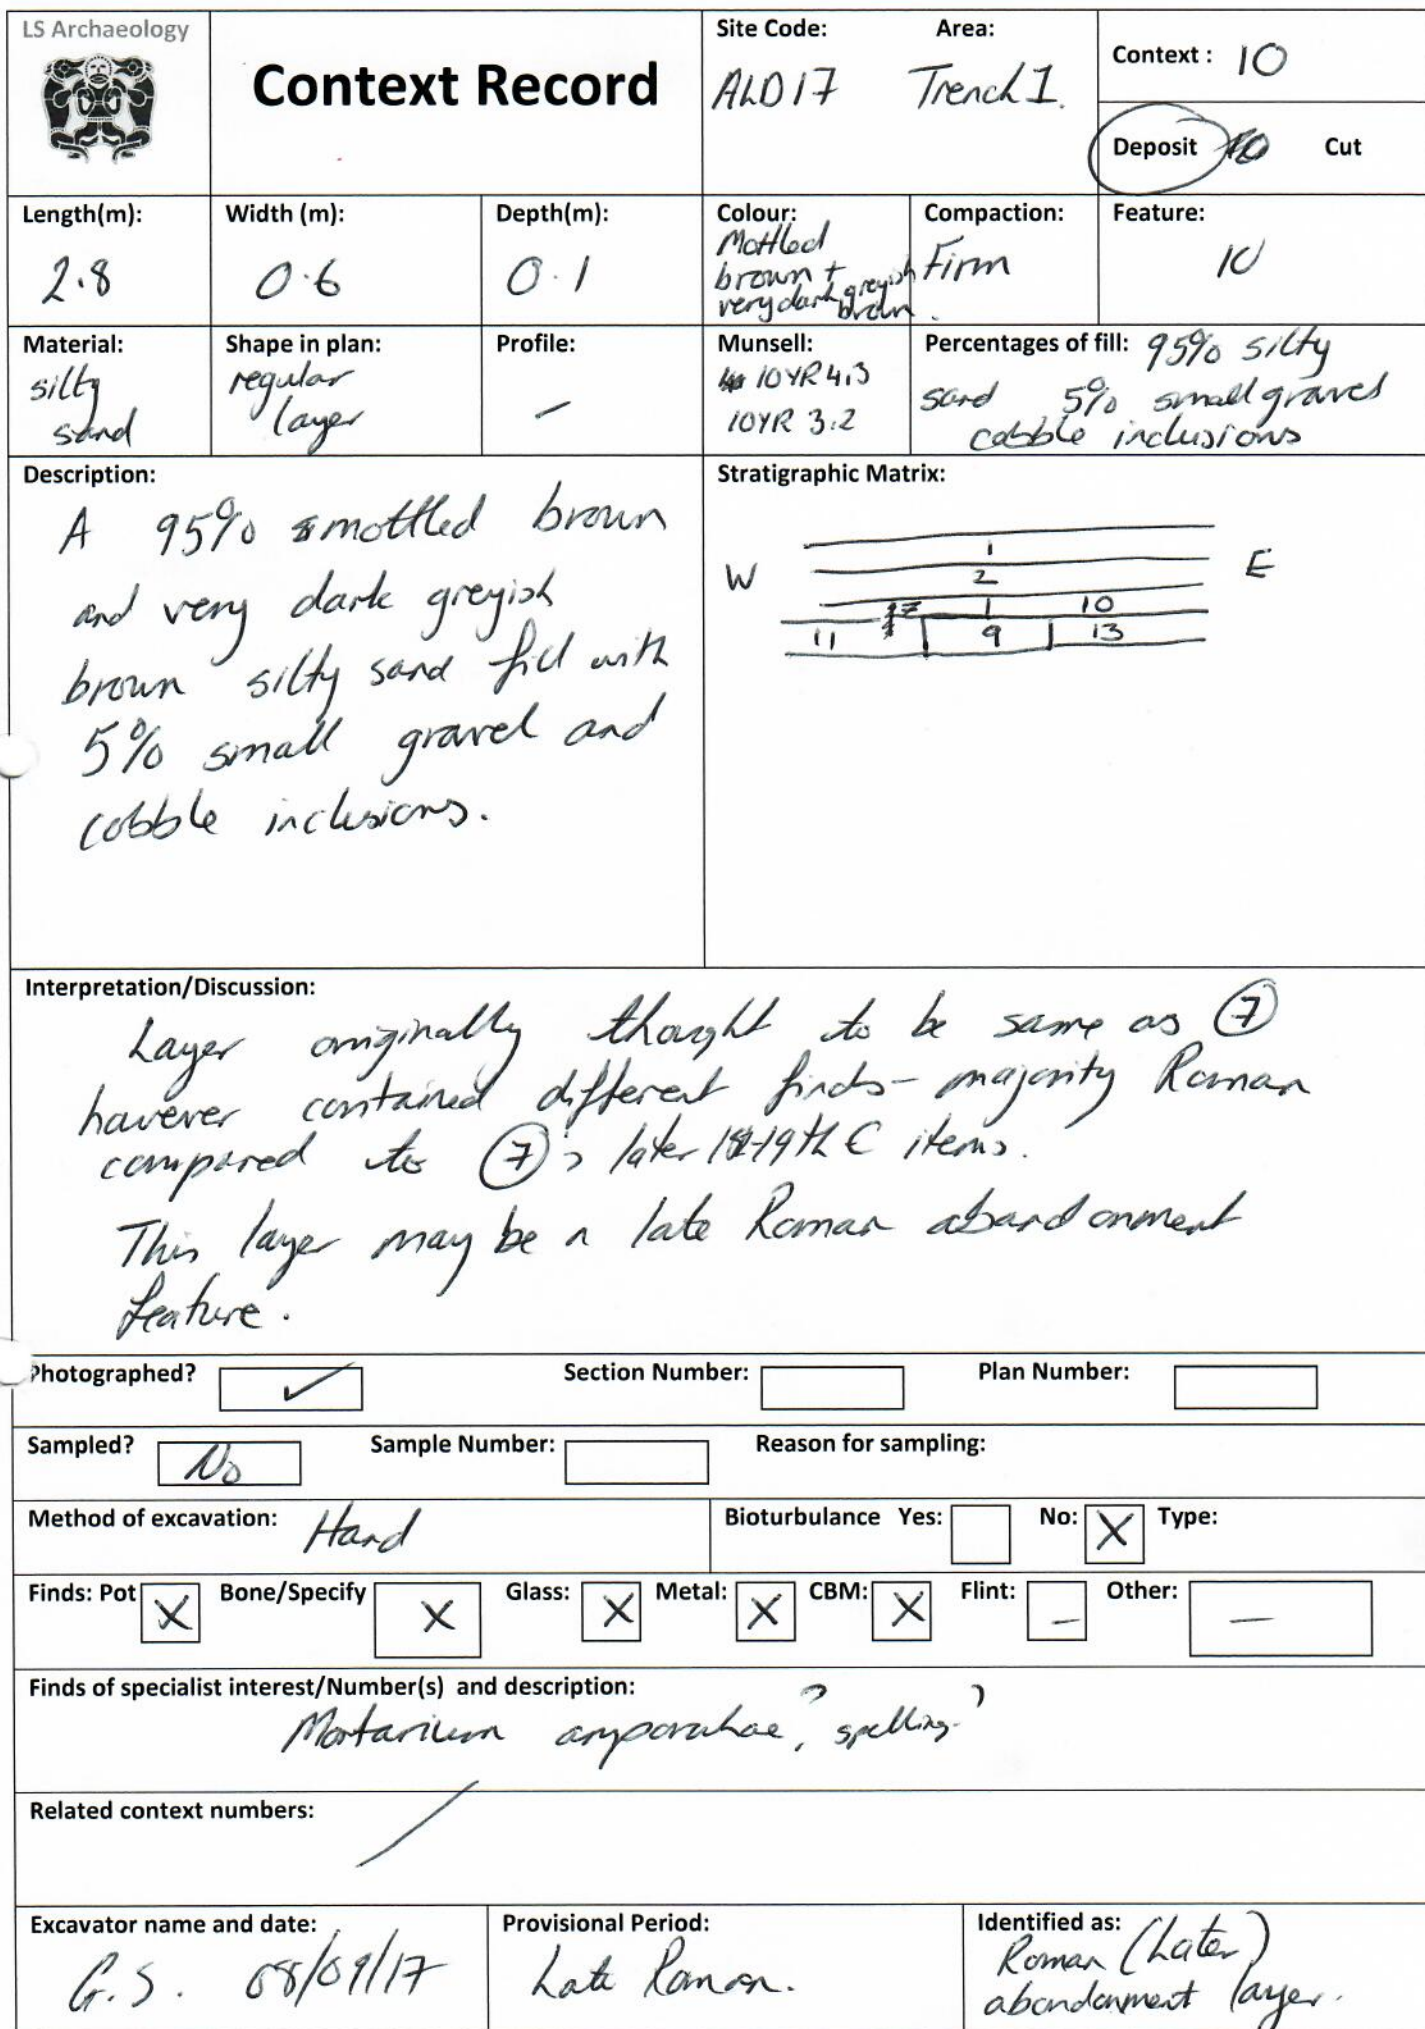 LS Archaeology
Context Record
Site Code:
ALD17
Area:
Trench 1.
Context : 10
Deposit
Cut
Length(m):
2.8
Width (m):
0.6
Depth(m):
0.1
Colour:
Mottled
brown +
very dark greyish
brown.
Compaction:
Firm
Feature:
10
Material:
silty
sand
Shape in plan:
regular
layer
Profile:
–
Munsell:
10YR 4.3
10YR 3.2
Percentages of fill: 95% silty
sand 5% small gravel
cobble inclusions
Description:
A 95% mottled brown
and very dark greyish
brown silty sand fill with
5% small gravel and
cobble inclusions.
Stratigraphic Matrix:
W
E
1
2
7
10
11
9
13
Interpretation/Discussion:
Layer originally thought to be same as 7
however contained different finds – majority Roman
compared to 7's later 18-19th C items.
This layer may be a late Roman abandonment
feature.
Photographed? ✓
Section Number:
Plan Number:
Sampled? No
Sample Number:
Reason for sampling:
Method of excavation: Hand
Bioturbulance Yes:
No: X
Type:
Finds: Pot X
Bone/Specify X
Glass: X
Metal: X
CBM: X
Flint: –
Other: –
Finds of specialist interest/Number(s) and description:
Mortarium amporahae? , spelling?
Related context numbers:
/
Excavator name and date:
G.S. 08/09/17
Provisional Period:
Late Roman.
Identified as: Roman (Later)
abandonment layer.